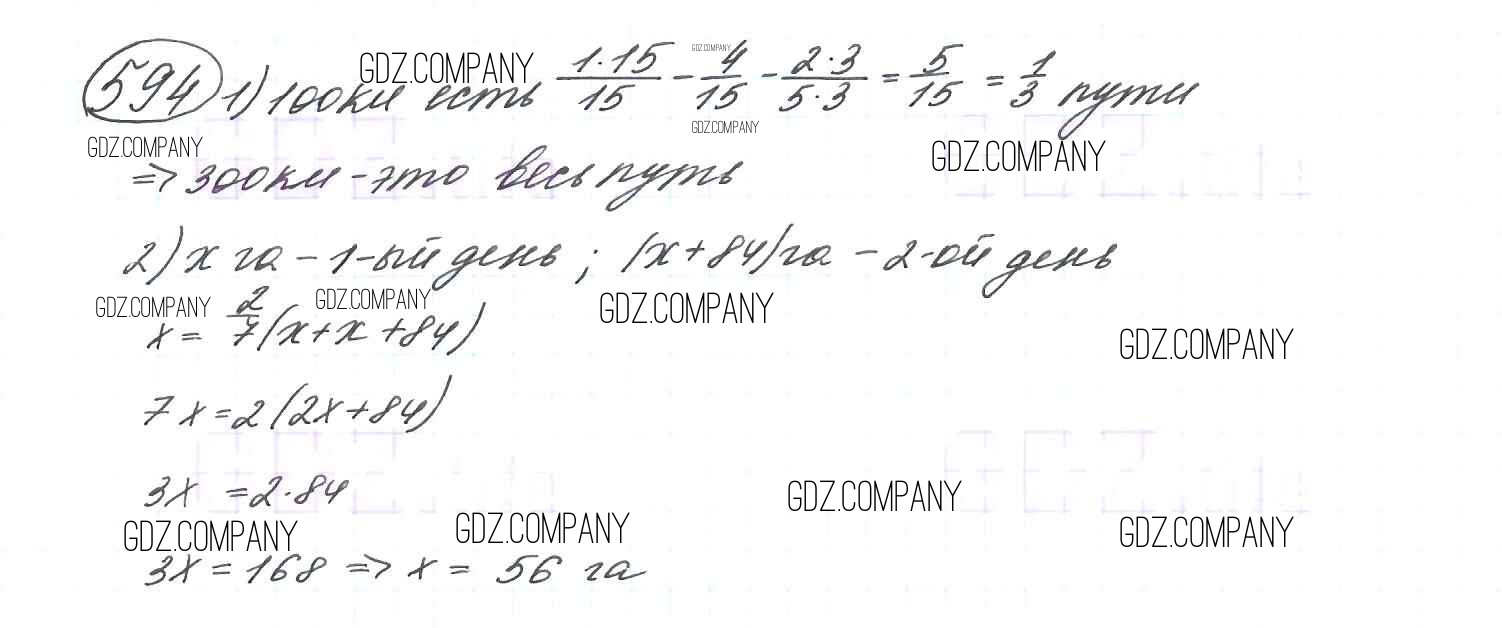 594 1) 100км есть 1·15/15 - 4/15 - 2·3/5·3 = 5/15 = 1/3 пути
GDZ.COMPANY GDZ.COMPANY
GDZ.COMPANY GDZ.COMPANY GDZ.COMPANY
=> 300км - это весь путь
2) x га - 1-ый день ; (x+84)га - 2-ой день
GDZ.COMPANY GDZ.COMPANY GDZ.COMPANY
x = 2/7(x+x+84)
GDZ.COMPANY
7x=2(2x+84)
3x =2·84
GDZ.COMPANY
GDZ.COMPANY GDZ.COMPANY GDZ.COMPANY
3x = 168 => x = 56 га